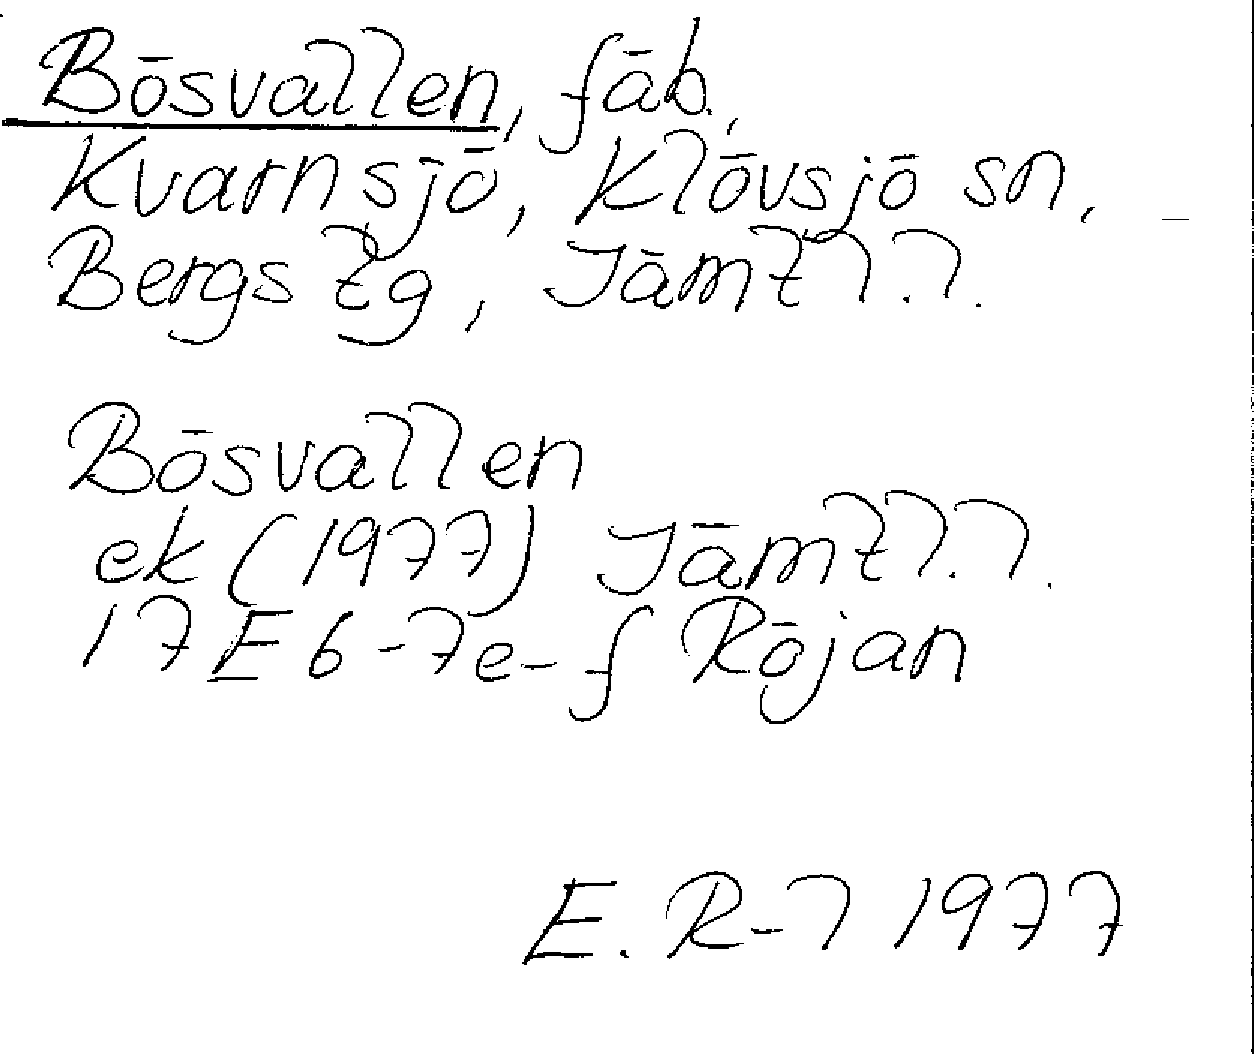 Bösvallen, fäb.,
Kvarnsjö, Klövsjö sn,
Bergs tg, Jämtl. l.
Bösvallen
ek (1977) Jämtl. l.
17E 6-7e-f Röjan
E. R-l 1977